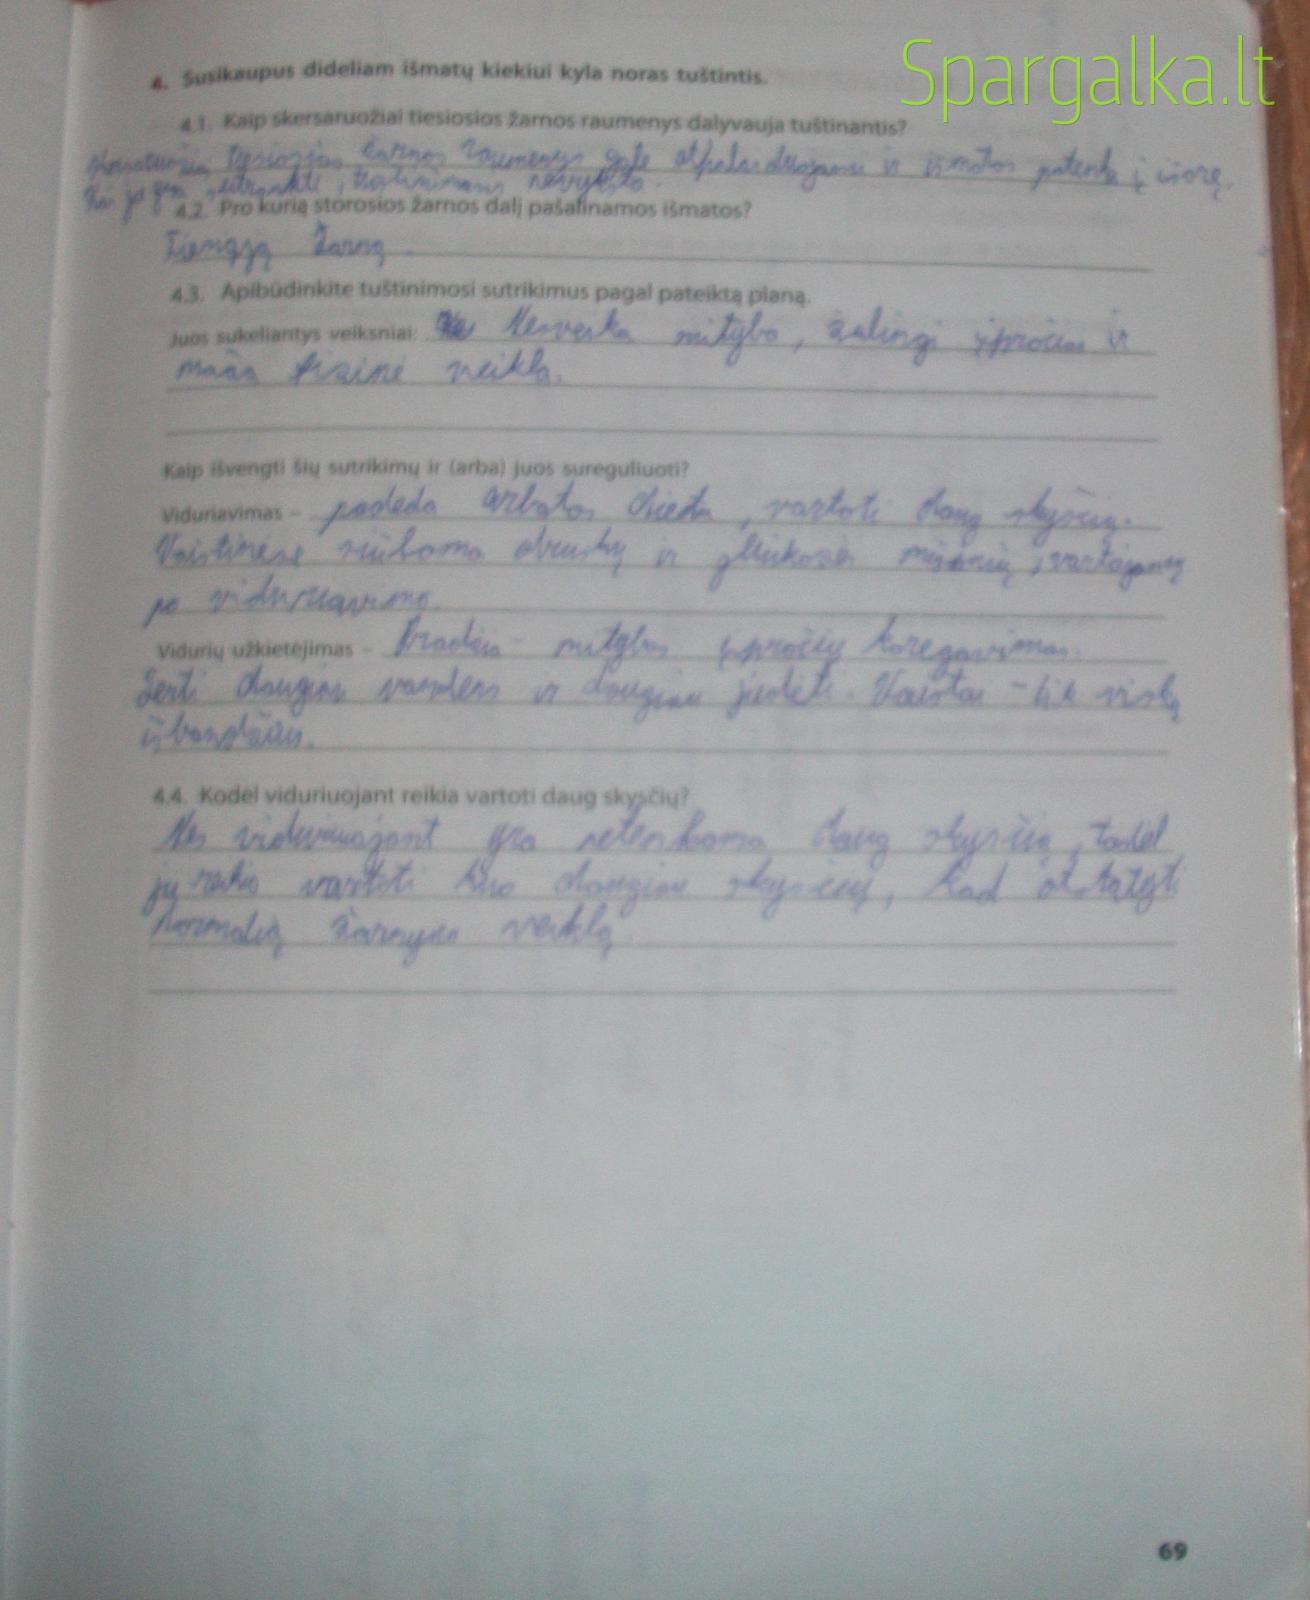 Spargalka.lt
4. Susikaupus dideliam išmatų kiekiui kyla noras tuštintis.
4.1. Kaip skersaruožiai tiesiosios žarnos raumenys dalyvauja tuštinantis?
tiesiosios žarnos raumenys gale atpalaiduojami ir išmatos patenka į išorę.
Kai jie yra susitraukę, tuštinimasis nevyksta.
4.2. Pro kurią storosios žarnos dalį pašalinamos išmatos?
Tiesiąją žarną
4.3. Apibūdinkite tuštinimosi sutrikimus pagal pateiktą planą.
Juos sukeliantys veiksniai: Nesveika mityba, žalingi įpročiai ir
maža fizinė veikla.
Kaip išvengti šių sutrikimų ir (arba) juos sureguliuoti?
Viduriavimas – padeda arbatos dieta, vartoti daug skysčių.
Vaistinėse siūloma druskų ir gliukozės mišinių, vartojamų
po viduriavimo.
Vidurių užkietėjimas – Pradžia – mitybos įpročių koregavimas.
Gerti daugiau vandens ir daugiau judėti. Vaistai – tik viską
išbandžius.
4.4. Kodėl viduriuojant reikia vartoti daug skysčių?
Nes viduriuojant yra netenkama daug skysčių, todėl
jų reikia vartoti kuo daugiau skysčių, kad atstatyti
normalią žarnyno veiklą
69